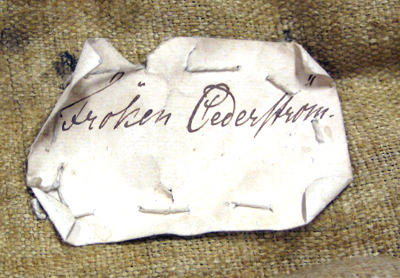 Fröken Cederström.